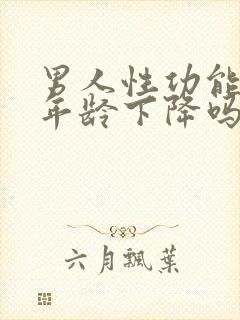 男人性功能
年龄下降吗
六月飘葉